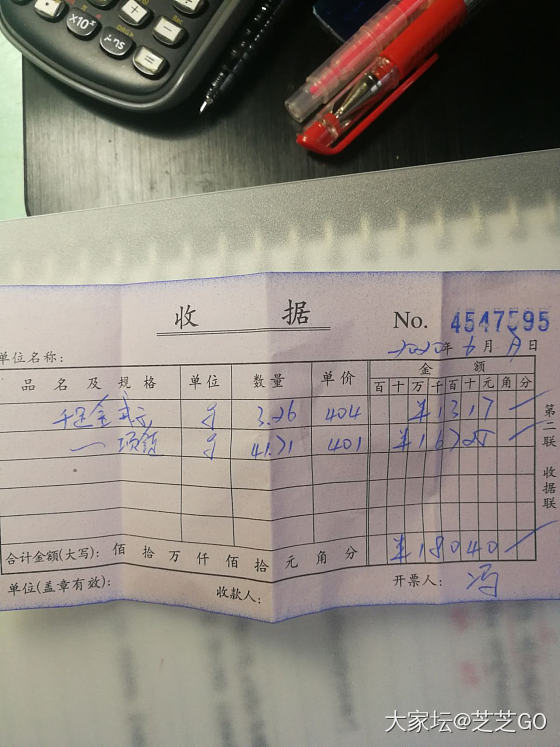 ÷
×10ˣ
收 据 No. 4547595
单位名称: 2020年 6月 日
品名及规格 单位 数量 单价 金额
百 十 万 千 百 十 元 角 分
千足金 g 3.26 404 ¥1317
一 项链 g 41.71 401 ¥16725
第二联 收据联
¥18040
合计金额(大写): 佰 拾 万 仟 佰 拾 元 角 分
单位(盖章有效): 收款人: 开票人: 冯
大家坛@芝芝GO